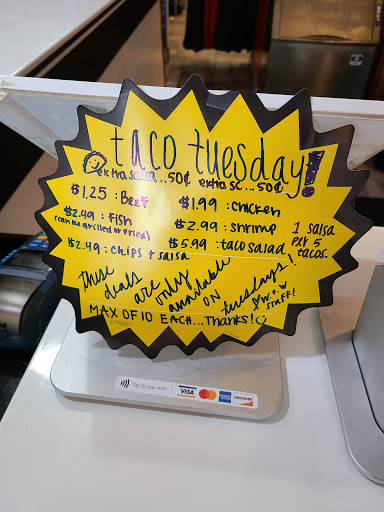 taco tuesday!
extra salsa..50¢ extra sc...50¢
$1.25 : Beef
$1.99 : chicken
$2.99 : fish
(can be grilled or fried)
$2.99 : shrimp
$2.49 : chips + salsa
$5.99 : taco salad
1 salsa
per 5
tacos.
these deals are only available on tuesdays!
MAX OF 10 EACH...Thanks!
STAFF!
Tap to pay with VISA AMEX DISCOVER